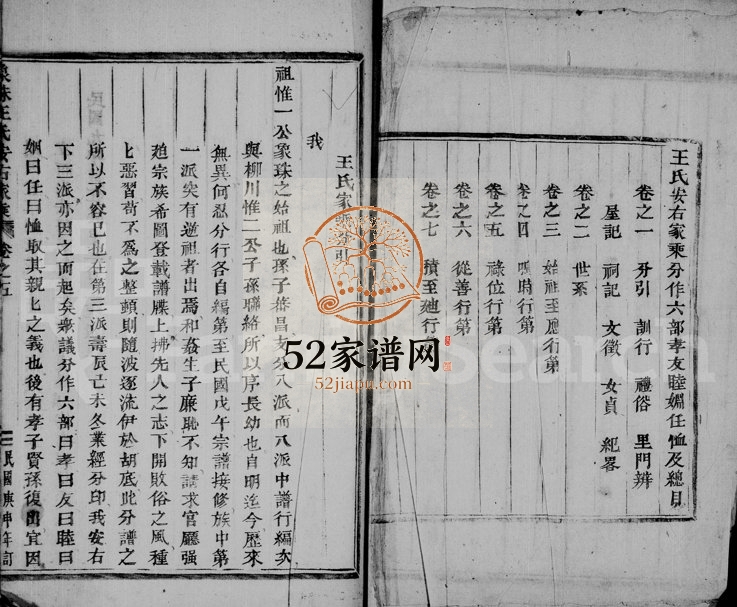 王氏安右家乘分作六部孝友睦婣任恤及總目
卷之一 弁引 訓行 禮俗 里門辨
屋記 祠記 女徵 女貞 紀畧
卷之二 世系
卷之三 始祖至應行第
卷之四 時行第
卷之五 祿位行第
卷之六 從善行第
卷之七 積至廸行
王氏家乘分引
我
祖惟一公象珠之始祖也孫子蕃昌支分八派而八派中譜行編次
與柳川惟二公子孫聯絡所以序長幼也自明迄今歷來
無異何忍分行各自編第至民國戊午宗譜接修族中第
一派突有逆祖者出焉和姦生子廉恥不知請求官廳强
廹宗族希圖登載譜牒上拂先人之志下開敗俗之風種
匕惡習苟不爲之整頓則隨波逐流伊於胡底此分譜之
所以不容已也在第三派壽辰已未冬業經分印我安右
下三派亦因之而起矣衆議分作六部曰孝曰友曰睦曰
婣曰任曰恤取其親匕之義也後有孝子賢孫復出宜因
象珠王氏安右家乘 卷之五
民國庚申年訂
52家谱网
52jiapu.com
Search